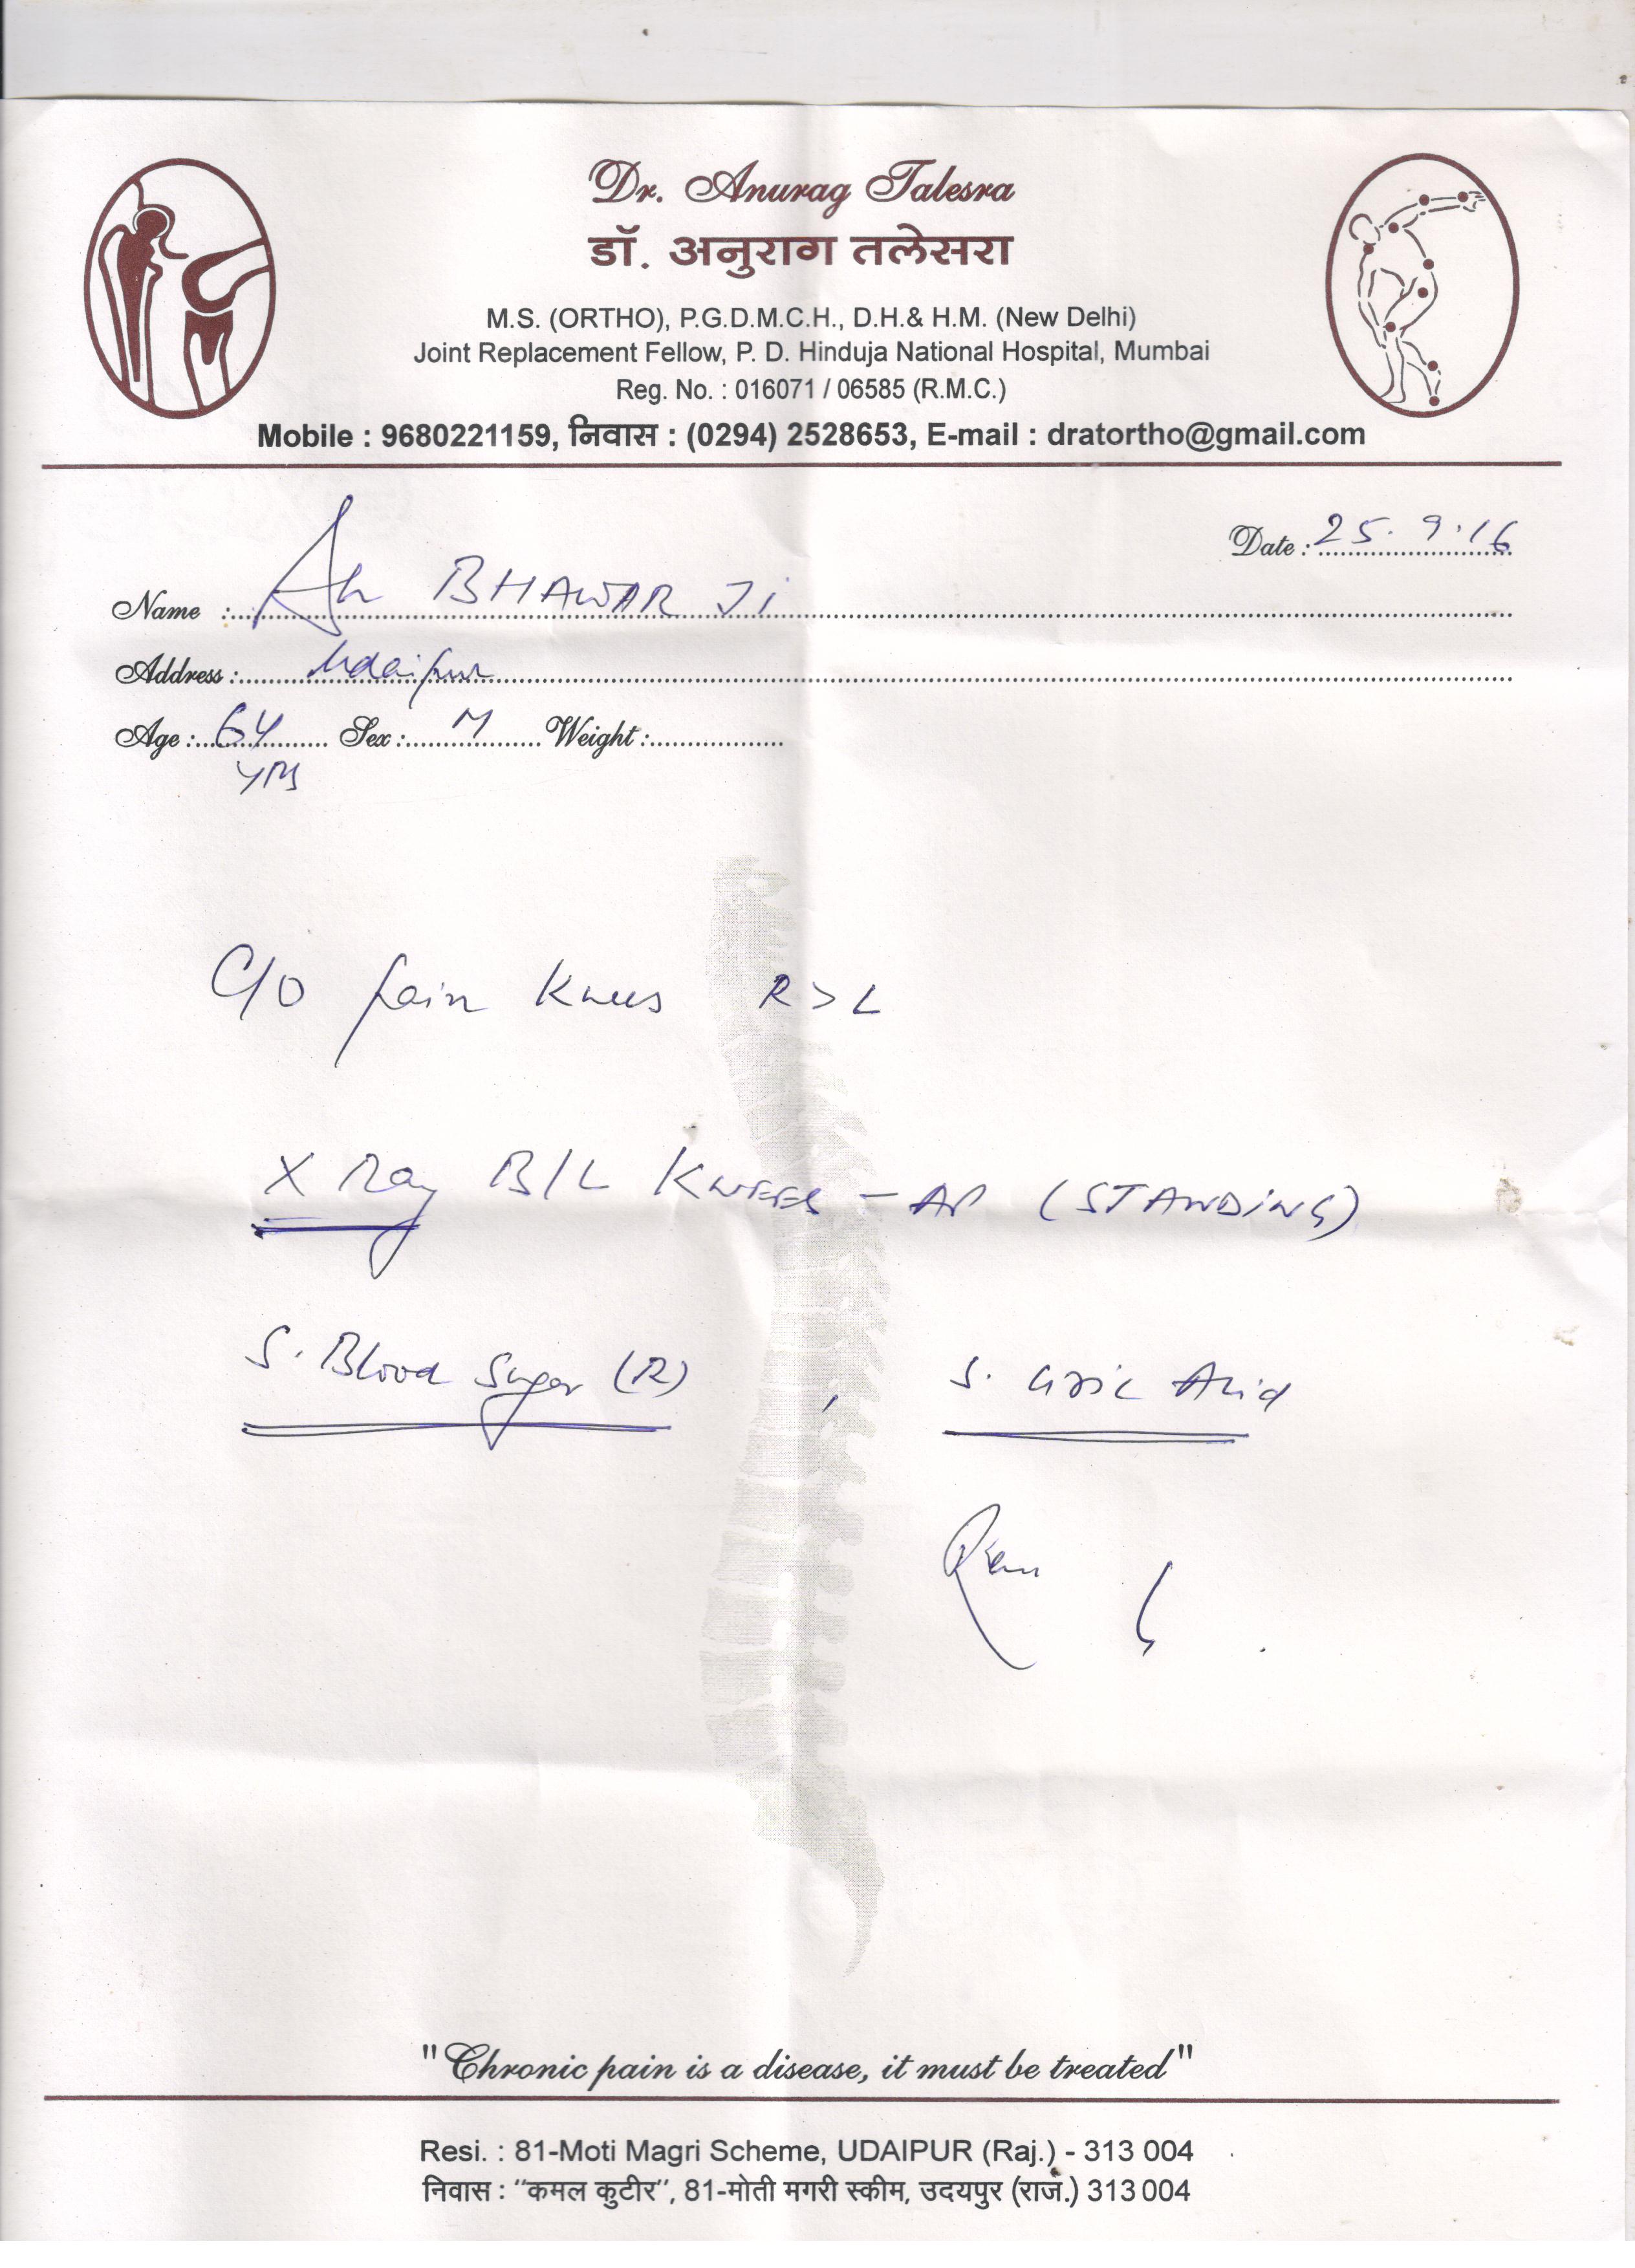 Dr. Anurag Talesra
डॉ. अनुराग तलेसरा
M.S. (ORTHO), P.G.D.M.C.H., D.H.& H.M. (New Delhi)
Joint Replacement Fellow, P. D. Hinduja National Hospital, Mumbai
Reg. No. : 016071 / 06585 (R.M.C.)
Mobile : 9680221159, निवास : (0294) 2528653, E-mail : dratortho@gmail.com
Date : 25.9.16
Name : BHAWAR Ji
Address : Udaipur
Age : 64 Sex : M Weight :
yrs
C/O pain Knees R>L
X Ray B/L KNEES - AP (STANDING)
S. Blood Sugar (R) , S. Uric Acid
"Chronic pain is a disease, it must be treated"
Resi. : 81-Moti Magri Scheme, UDAIPUR (Raj.) - 313 004
निवास : "कमल कुटीर", 81-मोती मगरी स्कीम, उदयपुर (राज.) 313 004